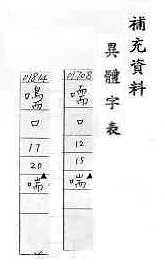 補充資料
異體字表
01708
口
12
15
喘▲
01814
口
17
20
喘▲